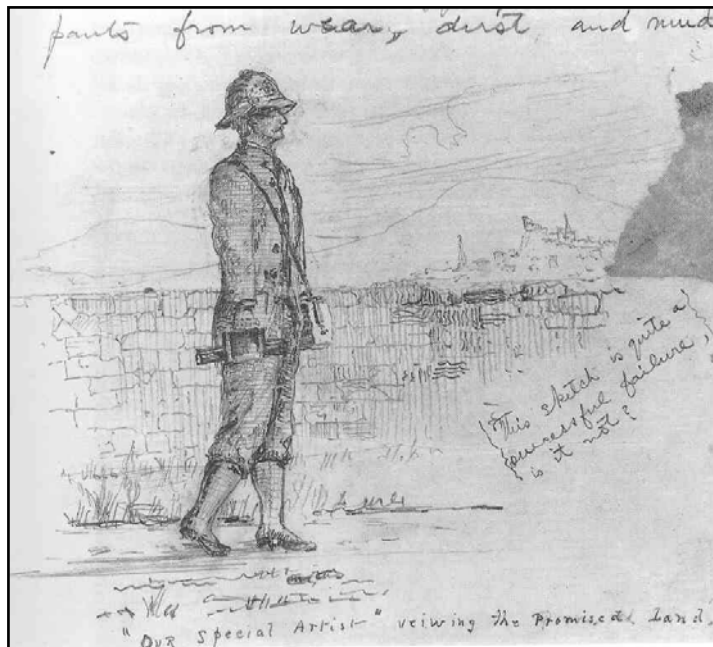 pants from wear, dust, and mud
This sketch is quite a
successful failure,
is it not?
"Our Special Artist" veiwing the Promised Land.